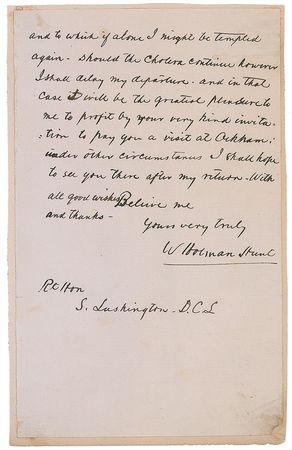 and to which if alone I might be tempted
again - should the Cholera continue however
I shall delay my departure - and in that
case it will be the greatest pleasure to
me to profit by your very kind invita-
-tion to pay you a visit at Ockham;
under other circumstances I shall hope
to see you there after my return - With
all good wishes Believe me
and thanks -
Yours very truly
W Holman Hunt
Rt Hon
S. Lushington - D.C.L